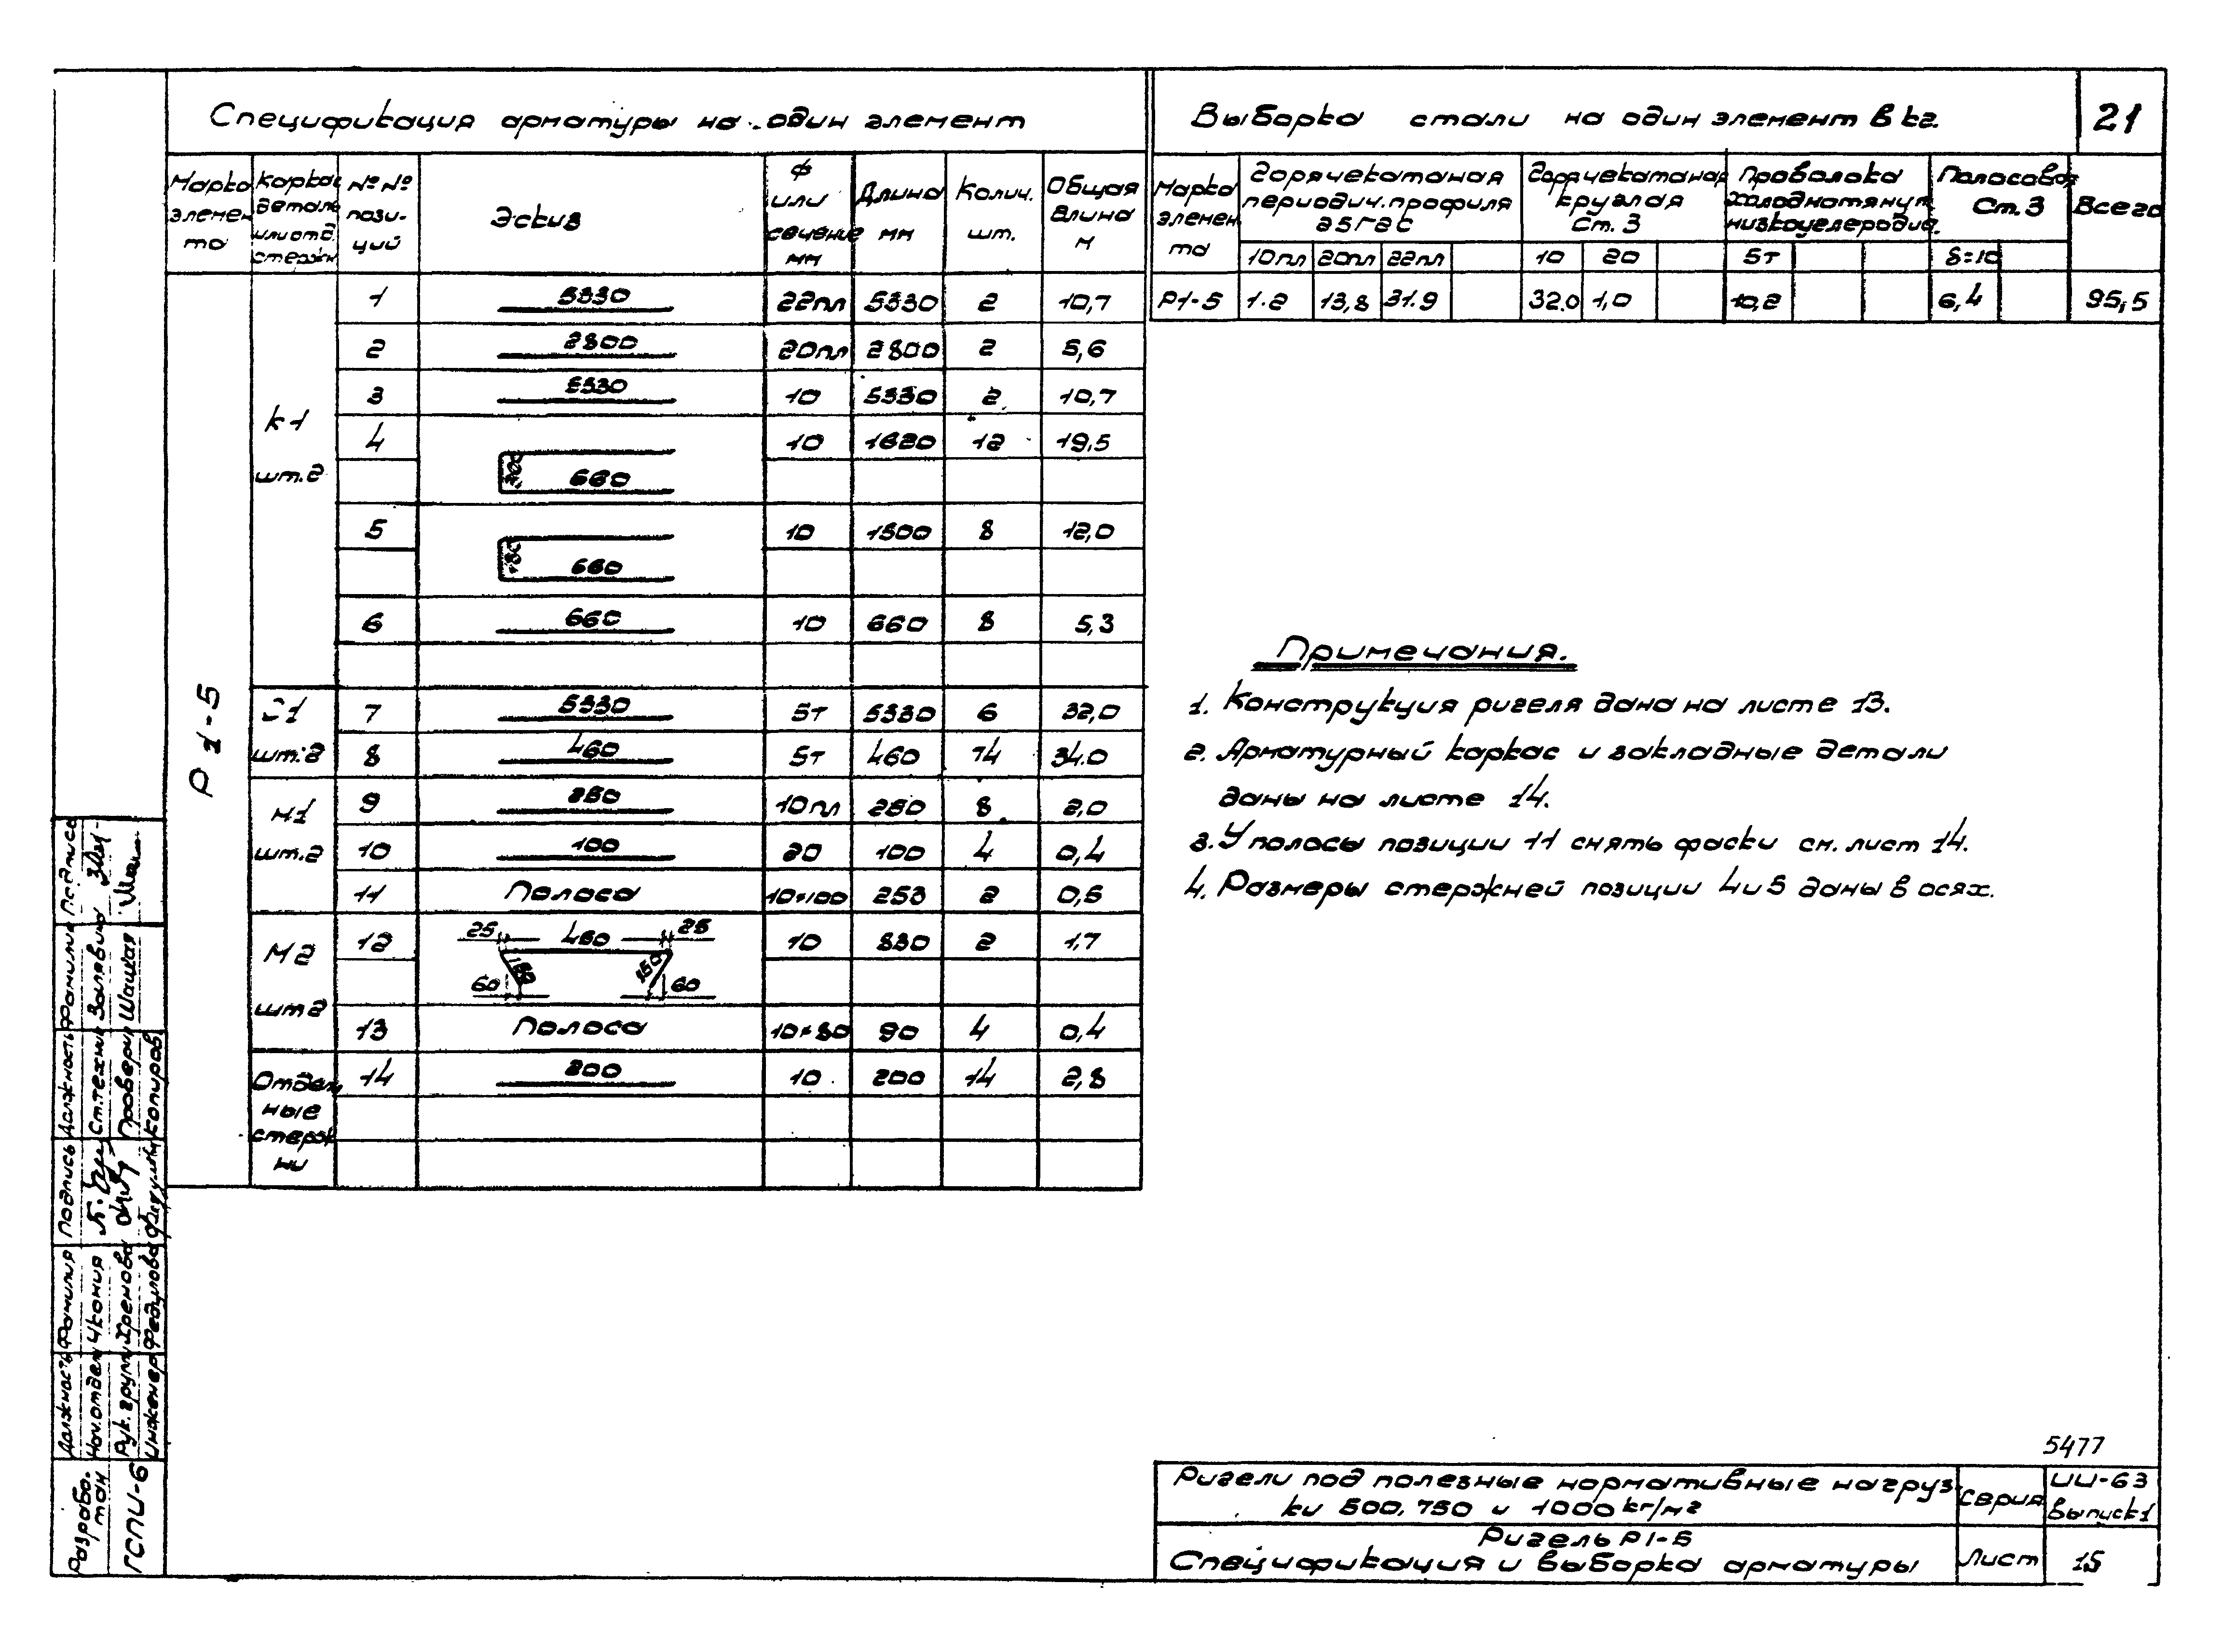 Спецификация арматуры на один элемент
Марка элемента
Каркас деталь или отд. стержн
№ № позиций
Эскиз
Ф или сечение мм
Длина мм
Колич. шт.
Общая длина м
Р1-5
К1 шт.2
1 5330 22пл 5330 2 10,7
2 2800 20пл 2800 2 5,6
3 5330 10 5330 2 10,7
4 660 10 1620 12 19,5
5 660 10 1500 8 12,0
6 660 10 660 8 5,3
С1 шт.2
7 5330 5т 5330 6 32,0
8 460 5т 460 74 34.0
М1 шт.2
9 250 10пл 250 8 2,0
10 100 20 100 4 0,4
11 Полоса 10×100 253 2 0,5
М2 шт2
12 25 460 25 60 150 60 10 830 2 1,7
13 Полоса 10×80 90 4 0,4
Отдельные стержни
14 200 10 200 14 2,8
Выборка стали на один элемент в кг.
21
Марка элемента
Горячекатаная периодич. профиля 25Г2С
Горячекатаная круглая Ст. 3
Проволока холоднотянут. низкоуглеродис.
Полосовая Ст. 3
Всего
10пл 20пл 22пл 10 20 5т δ=10
Р1-5 1.2 13,8 31.9 32.0 1,0 10,2 6,4 95,5
Примечания.
1. Конструкция ригеля дана на листе 13.
2. Арматурный каркас и закладные детали
даны на листе 14.
3. У полосы позиции 11 снять фаски см. лист 14.
4. Размеры стержней позиции 4 и 5 даны в осях.
5477
Ригели под полезные нормативные нагруз-
ки 500, 750 и 1000 кг/м2
серия
ИИ-63
Выпуск 1
Ригель Р1-5
Спецификация и выборка арматуры
Лист
15
Разработан
ГСПИ-6
Должность Фамилия Подпись Должность Фамилия Подпись
Нач.отдела Чкония Ст.техник
Рук. группы Хренова Проверил Шацкая
Инженер Федулова Копировал